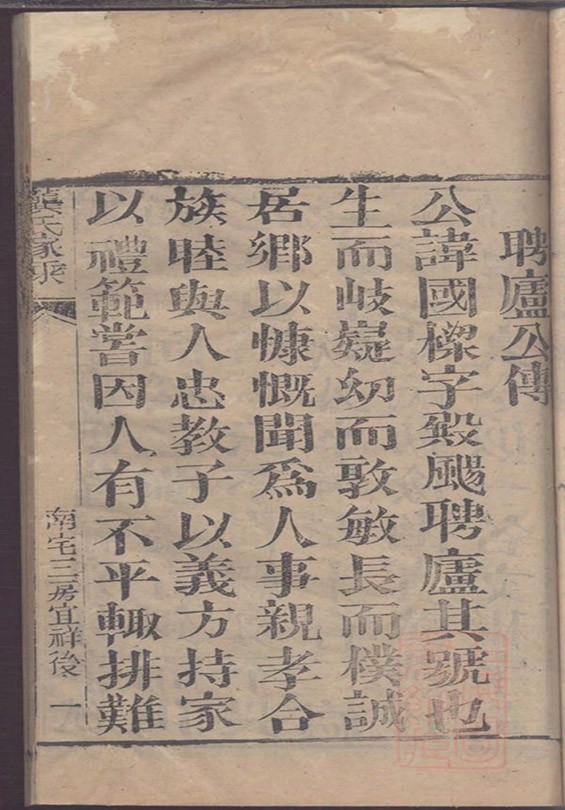 聘廬公傳
公諱國樑字毀颺聘廬其號也
生而岐嶷幼而敦敏長而樸誠
居鄉以慷慨聞爲人事親孝合
族睦與人忠教子以義方持家
以禮範嘗因人有不平輙排難
龔氏家乘
南宅三房宜祥後 一